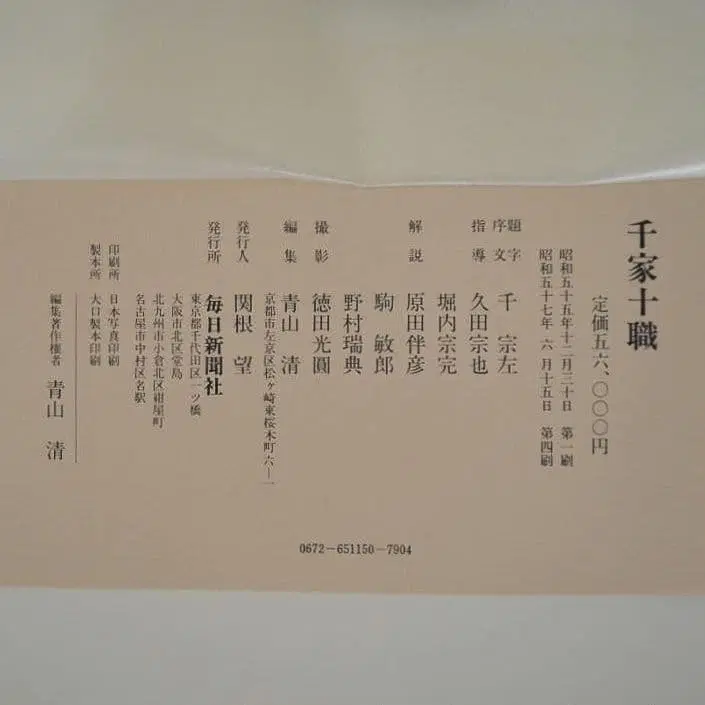 千家十職
定価五六、〇〇〇円
昭和五十五年十二月三十日 第一刷
昭和五十七年 六月十五日 第四刷
題字
序文 千 宗左
指導 久田宗也
堀内宗完
解説 原田伴彦
駒 敏郎
野村瑞典
撮影 徳田光圓
編集 青山 清
京都市左京区松ヶ崎東桜木町六—一
発行人 関根 望
発行所 毎日新聞社
東京都千代田区一ツ橋
大阪市北区堂島
北九州市小倉北区紺屋町
名古屋市中村区名駅
印刷所 日本写真印刷
製本所 大口製本印刷
編集著作権者 青山 清
0672-651150-7904